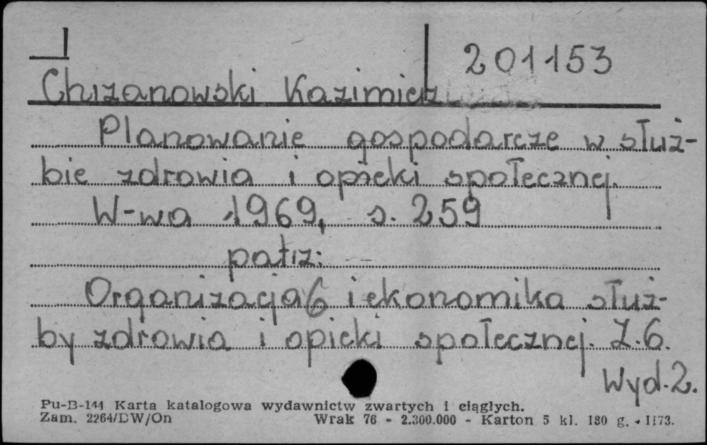 201153
Chrzanowski Kazimierz
Planowanie gospodarcze w służ-
bie zdrowia i opieki społecznej.
W-wa 1969, s. 259
patrz:
Organizacja i ekonomika służ-
by zdrowia i opieki społecznej. Z.6.
Wyd.2.
Pu-B-144 Karta katalogowa wydawnictw zwartych i ciągłych.
Zam. 2264/DW/On Wrak 76 - 2.300.000 - Karton 5 kl. 180 g. - II73.